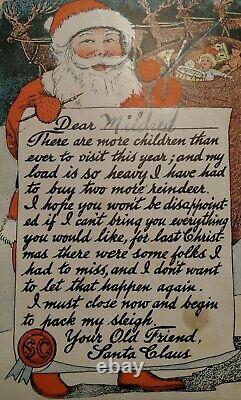 Dear Mildred
There are more children than
ever to visit this year; and my
load is so heavy I have had
to buy two more reindeer.
I hope you won't be disappoint-
ed if I can't bring you everything
you would like, for last Christ-
mas there were some folks I
had to miss, and I don't want
to let that happen again.
I must close now and begin
to pack my sleigh.
Your Old Friend,
Santa Claus
SC